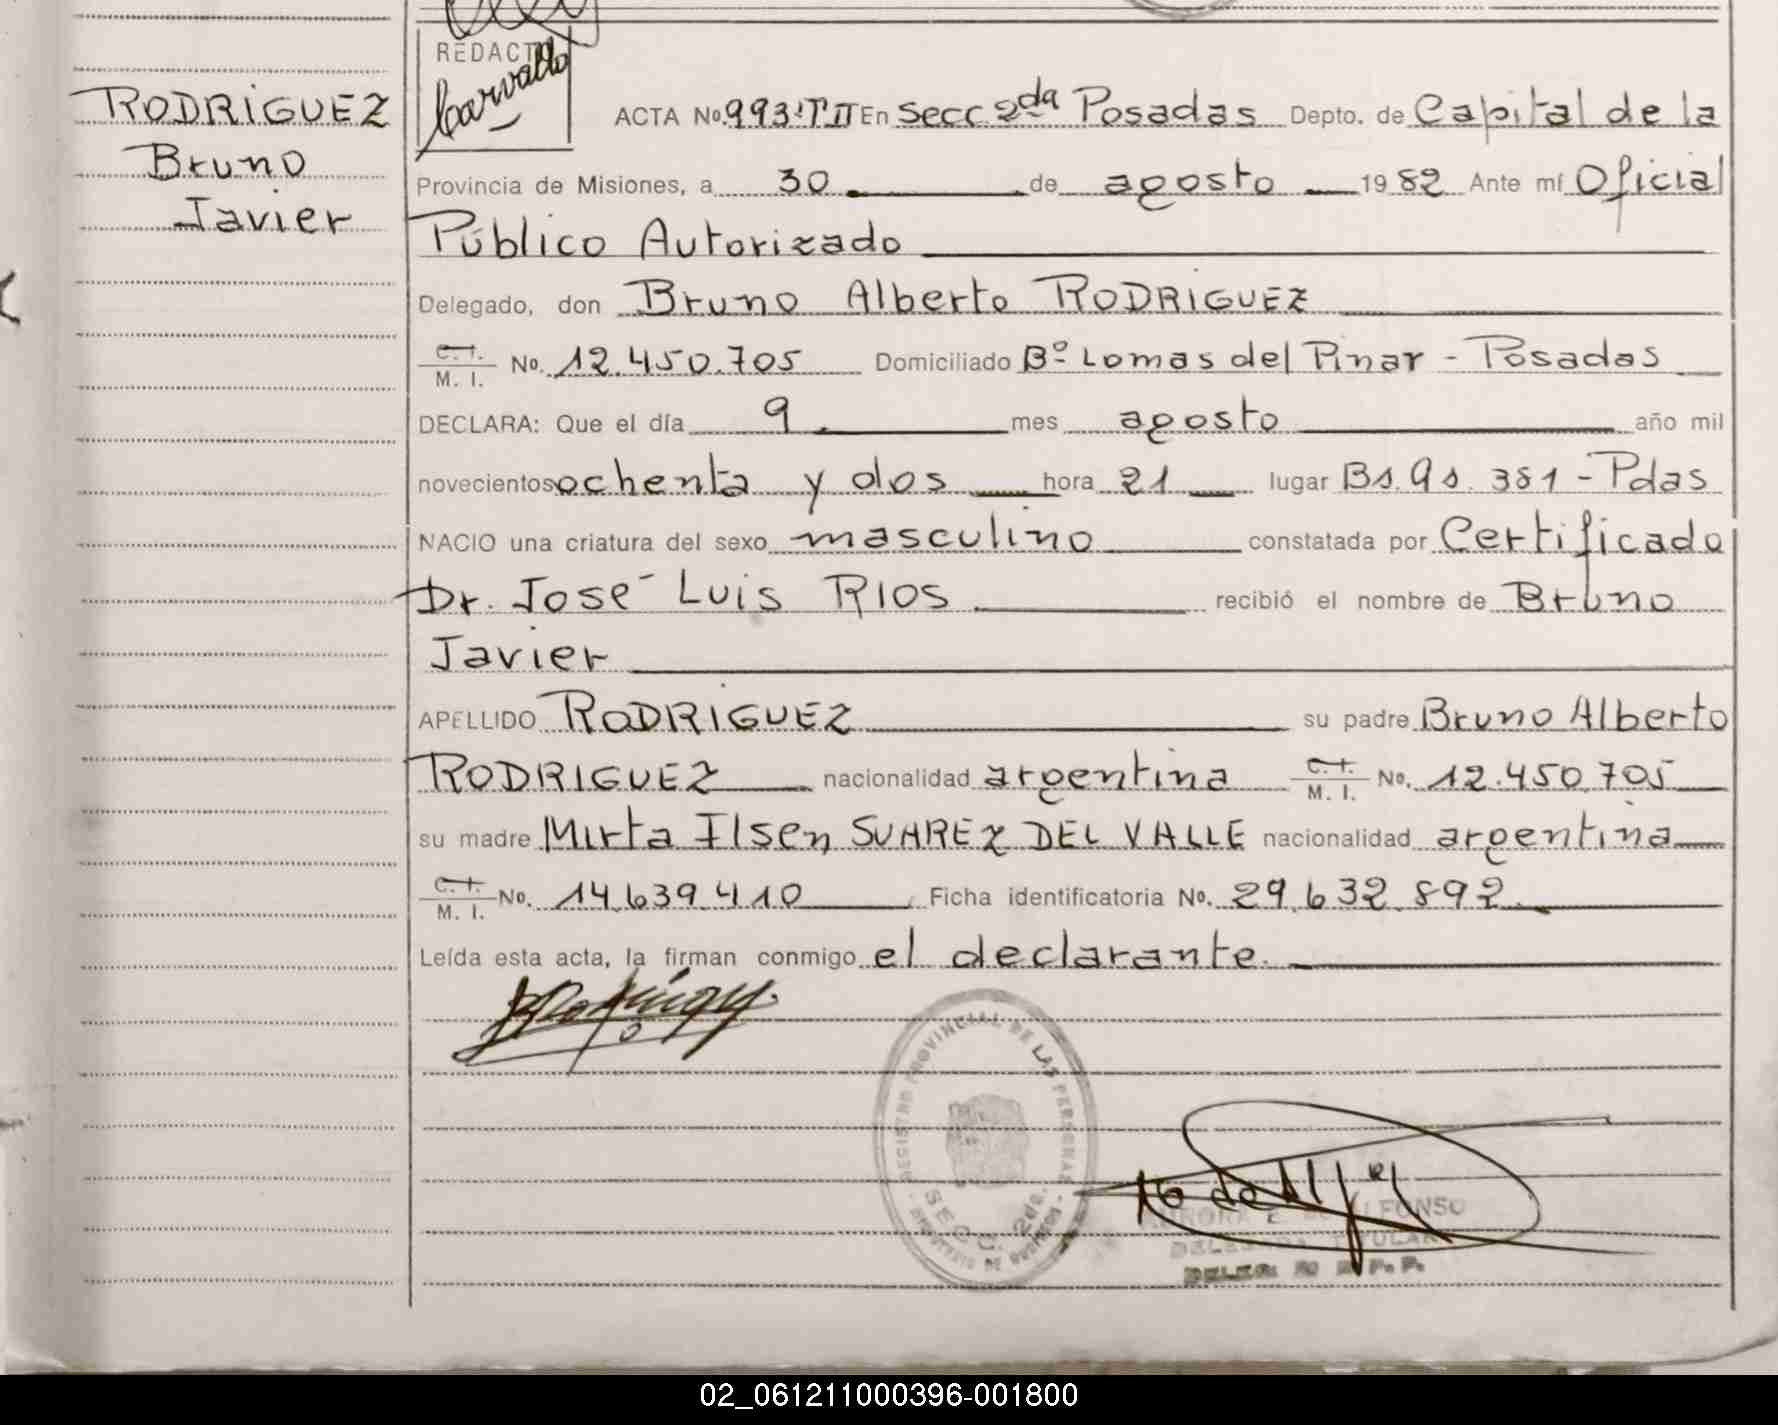 REDACTO
Carvallo
RODRIGUEZ
Bruno
Javier
ACTA No. 993·T°II En Secc 2da Posadas Depto. de Capital de la
Provincia de Misiones, a 30 de agosto 1982 Ante mí Oficial
Público Autorizado
Delegado, don Bruno Alberto RODRIGUEZ
C.I. M. I. No. 12.450.705 Domiciliado Bº Lomas del Pinar - Posadas
DECLARA: Que el día 9 mes agosto año mil
novecientos ochenta y dos hora 21 lugar Bs.As. 381 - Pdas
NACIO una criatura del sexo masculino constatada por Certificado
Dr. José Luis RIOS recibió el nombre de Bruno
Javier
APELLIDO RODRIGUEZ su padre Bruno Alberto
RODRIGUEZ nacionalidad argentina C.I. M. I. No. 12.450.705
su madre Mirta Ilsen SUAREZ DEL VALLE nacionalidad argentina
C.I. M. I. No. 14.639.410 Ficha identificatoria No. 29.632.892
Leída esta acta, la firman conmigo el declarante.
REGISTRO PROVINCIAL DE LAS PERSONAS
SECC. 2da.
AURORA E. ALFONSO
DELEGADA TITULAR
02_061211000396-001800